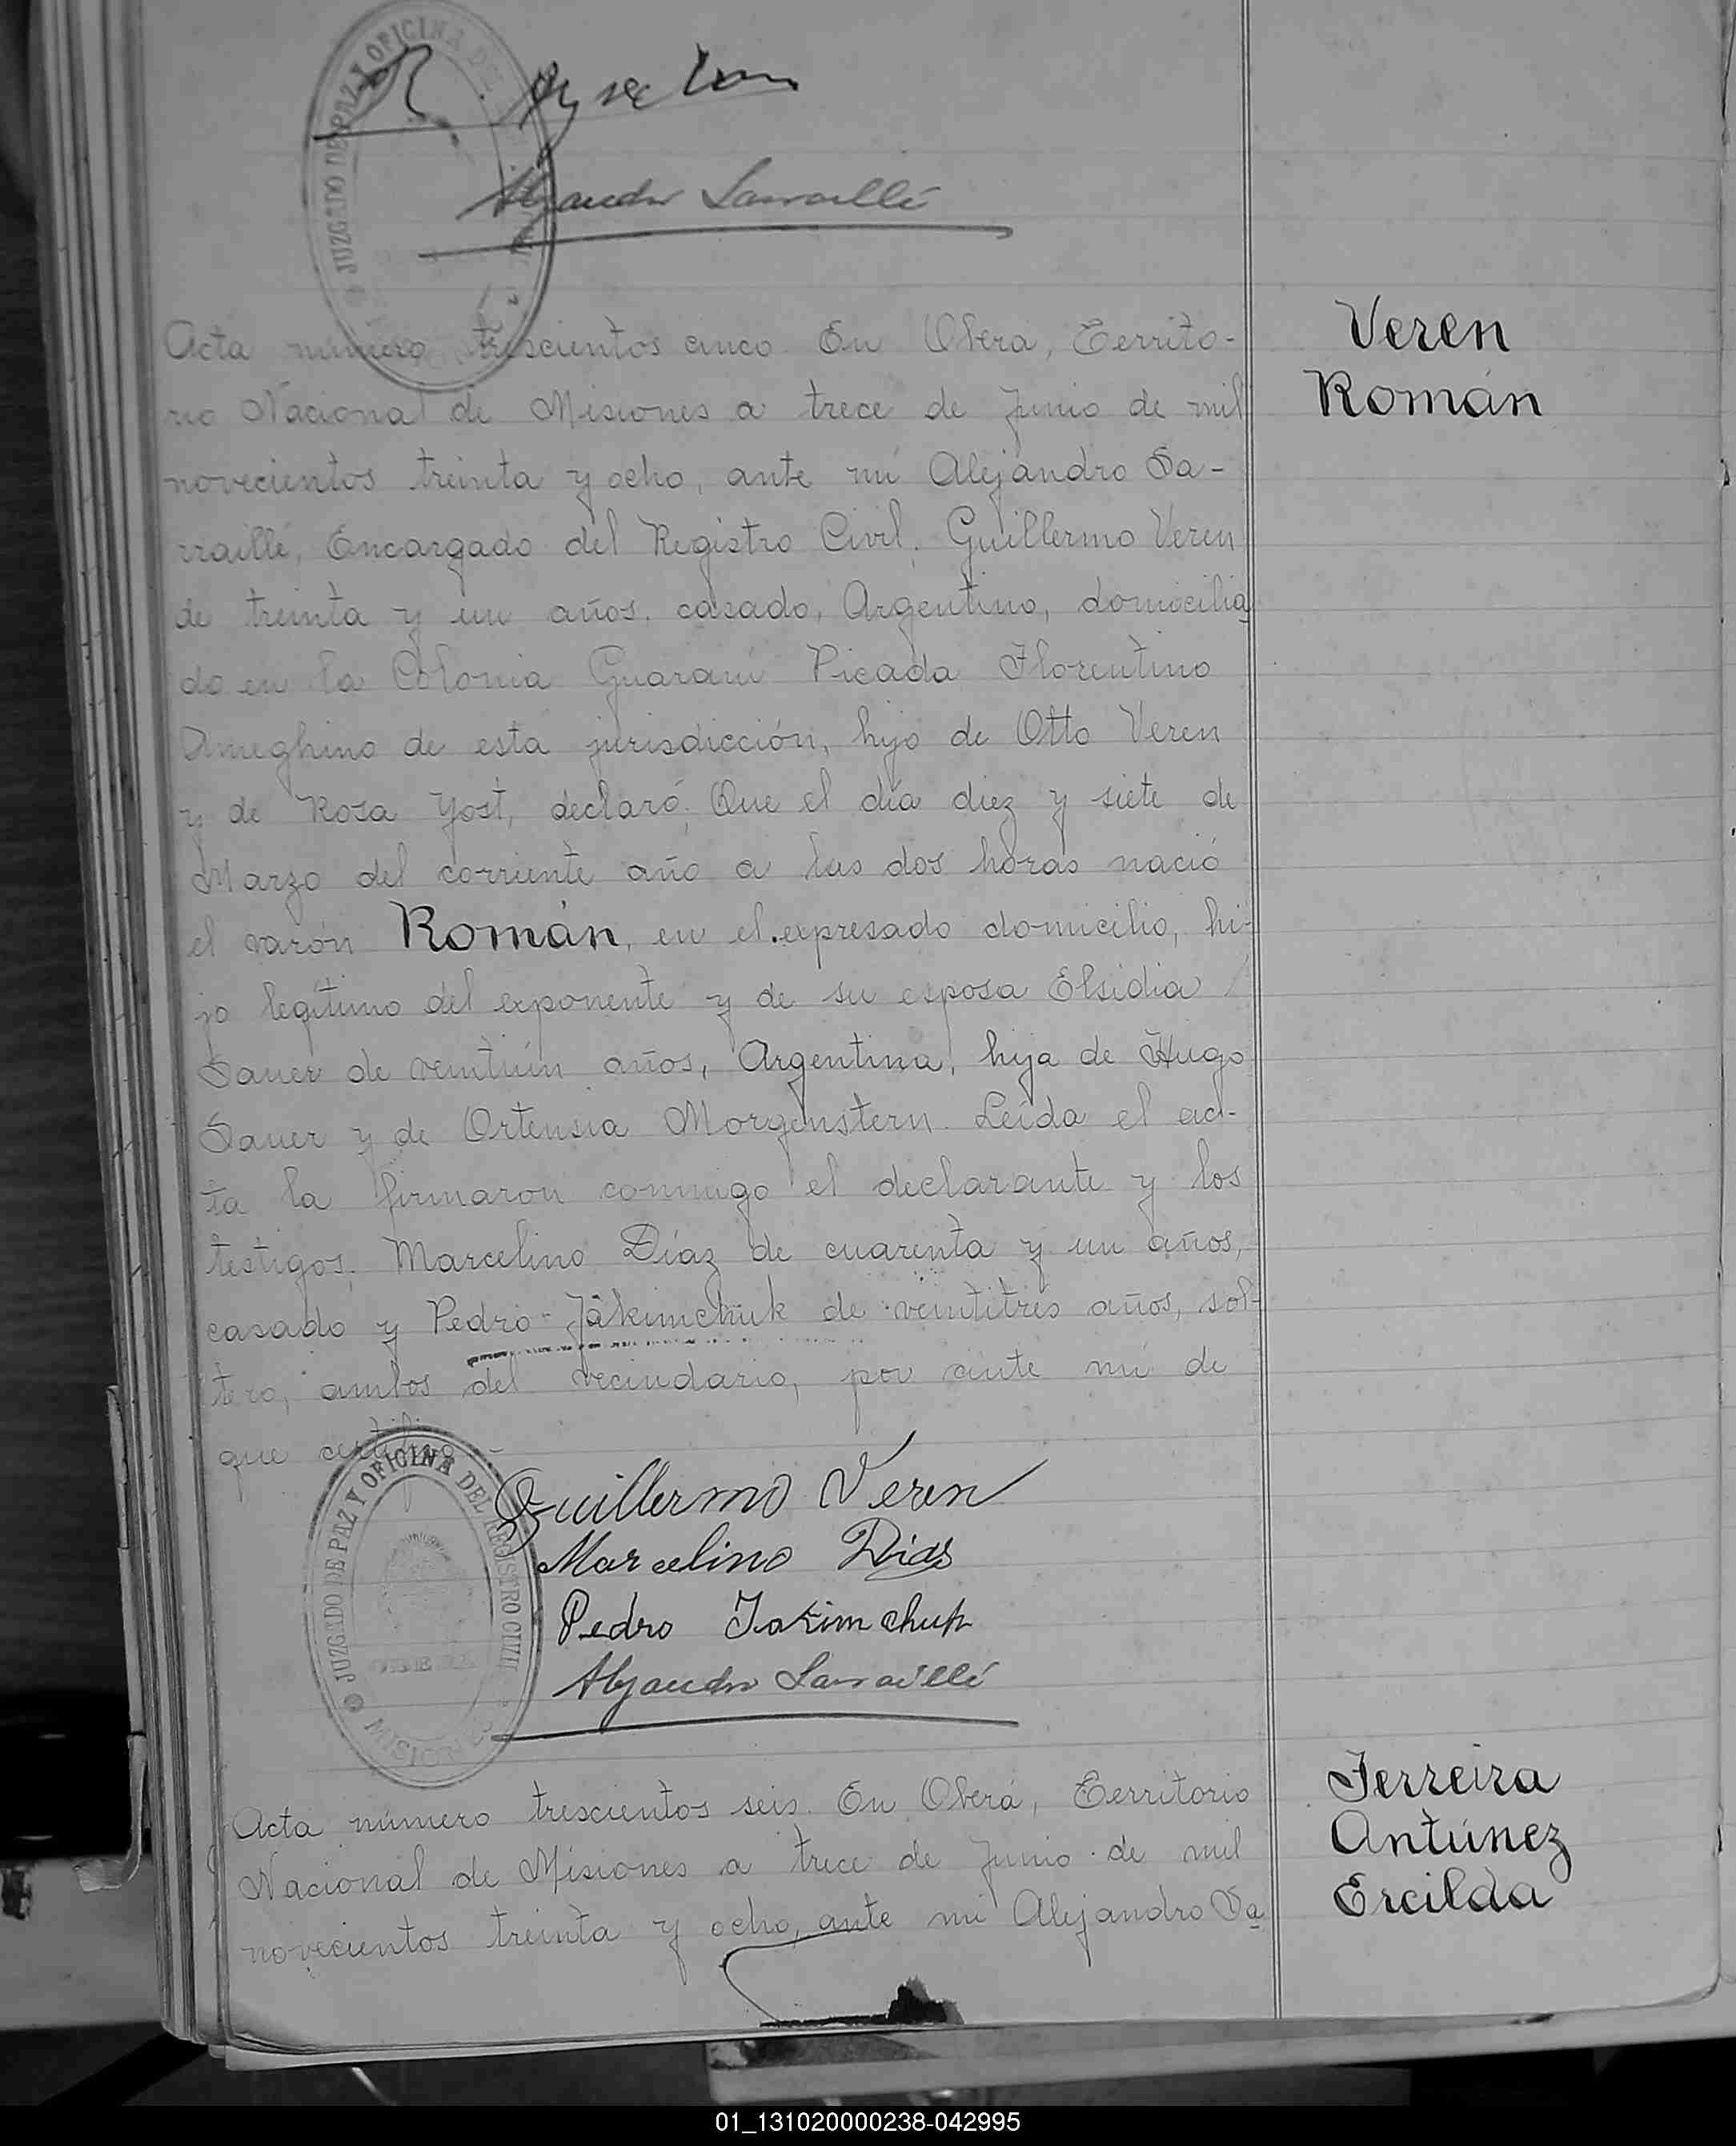 Alejandro Sarraillé
JUZGADO DE PAZ Y OFICINA DEL
Veren
Román
Acta número trescientos cinco. En Oberá, Territo-
rio Nacional de Misiones a trece de Junio de mil
novecientos treinta y ocho, ante mí Alejandro Sa-
rraillé, Encargado del Registro Civil. Guillermo Veren
de treinta y un años, casado, Argentino, domicilia
do en la Colonia Guaraní Picada Florentino
Ameghino de esta jurisdicción, hijo de Otto Veren
y de Rosa Yost, declaró: Que el día diez y siete de
Marzo del corriente año a las dos horas nació
el varón Román, en el expresado domicilio, hi-
jo legítimo del exponente y de su esposa Elsidia
Sauer de veintiún años, Argentina, hija de Hugo
Sauer y de Ortensia Morgenstern. Leída el ac-
ta la firmaron conmigo el declarante y los
testigos: Marcelino Díaz de cuarenta y un años,
casado y Pedro Jakimchuk de veintitrés años, sol-
tero, ambos del vecindario, por ante mí de
que certifico.-
JUZGADO DE PAZ Y OFICINA DEL REGISTRO CIVIL
OBERA
MISIONES
Guillermo Veren
Marcelino Dias
Pedro Jakimchuk
Alejandro Sarraillé
Ferreira
Antúnez
Ercilda
Acta número trescientos seis. En Oberá, Territorio
Nacional de Misiones a trece de Junio de mil
novecientos treinta y ocho, ante mí Alejandro Sa
01_131020000238-042995